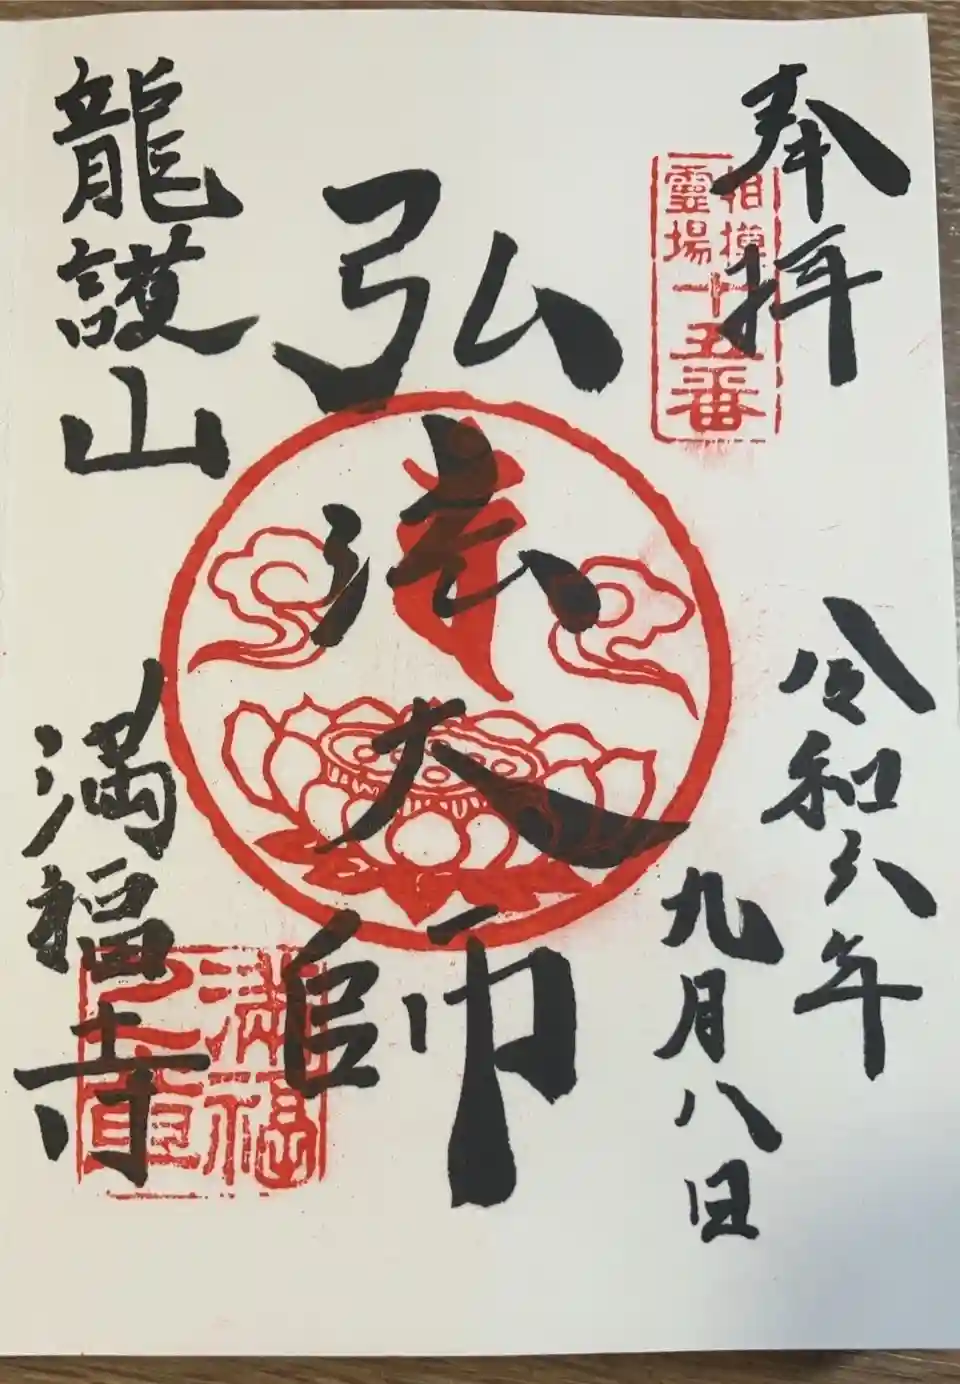 奉拝
相模
靈場
十五番
令和六年
九月八日
弘法大師
龍護山
満福寺
満福